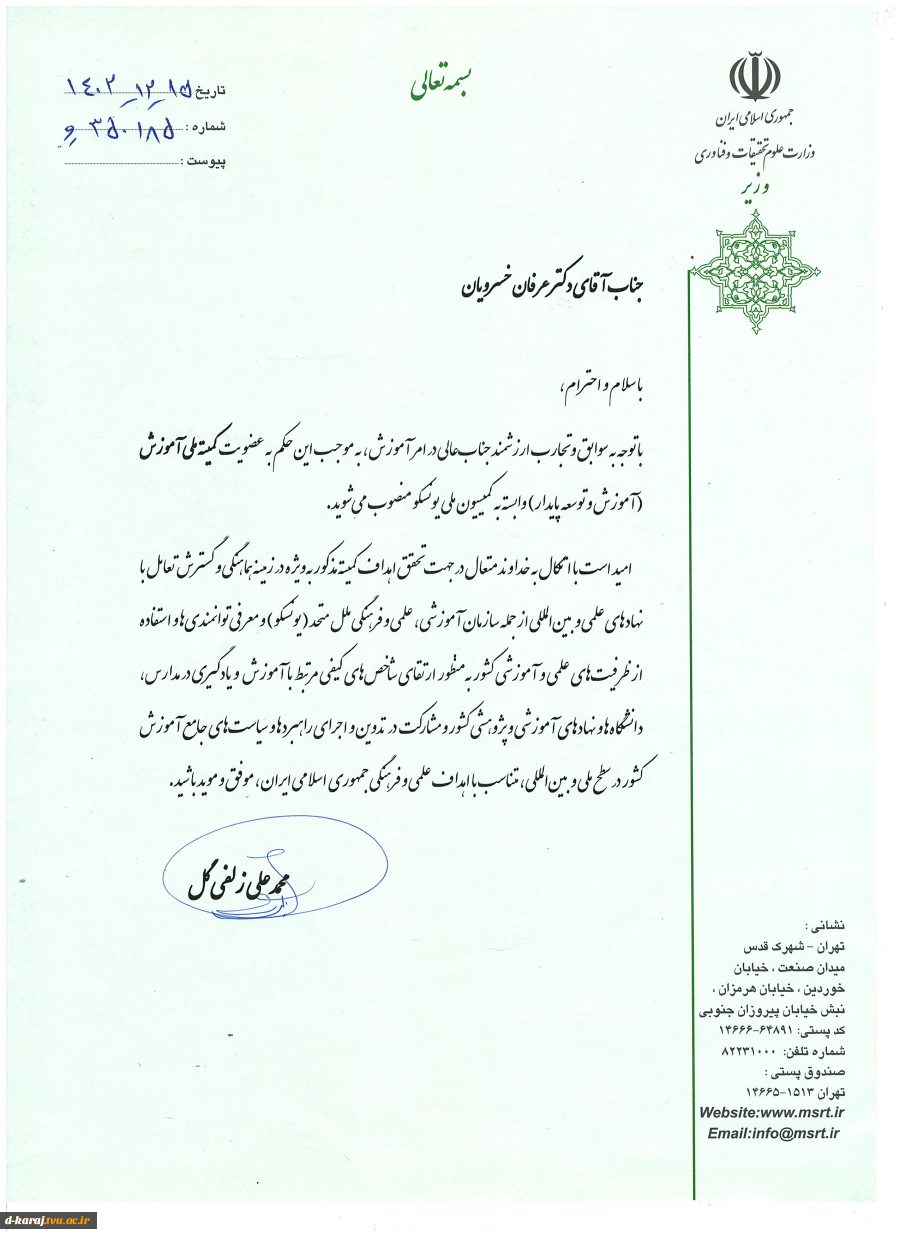 بسمه تعالی
جمهوری اسلامی ایران
وزارت علوم تحقیقات و فناوری
وزیر
تاریخ ۱۴۰۲_۱۲_۱۵
شماره : ۳۵۰۱۸۵ و
پیوست :
جناب آقای دکتر عرفان خسرویان
با سلام و احترام،
با توجه به سوابق و تجارب ارزشمند جناب عالی در امر آموزش، به موجب این حکم به عضویت کمیته ملی آموزش
(آموزش و توسعه پایدار) وابسته به کمیسیون ملی یونسکو منصوب می شوید.
امید است با اتکال به خداوند متعال در جهت تحقق اهداف کمیته مذکور به ویژه در زمینه هماهنگی و گسترش تعامل با
نهادهای علمی و بین المللی از جمله سازمان آموزشی، علمی و فرهنگی ملل متحد (یونسکو) و معرفی توانمندی ها و استفاده
از ظرفیت های علمی و آموزشی کشور به منظور ارتقای شاخص های کیفی مرتبط با آموزش و یادگیری در مدارس،
دانشگاه ها و نهادهای آموزشی و پژوهشی کشور و مشارکت در تدوین و اجرای راهبردها و سیاست های جامع آموزش
کشور در سطح ملی و بین المللی، متناسب با اهداف علمی و فرهنگی جمهوری اسلامی ایران، موفق و موید باشید.
محمد علی زلفی گل
نشانی :
تهران - شهرک قدس
میدان صنعت ، خیابان
خوردین ، خیابان هرمزان ،
نبش خیابان پیروزان جنوبی
کد پستی: ۶۴۸۹۱-۱۴۶۶۶
شماره تلفن: ۸۲۲۳۱۰۰۰
صندوق پستی :
تهران ۱۵۱۳-۱۴۶۶۵
Website:www.msrt.ir
Email:info@msrt.ir
d-karaj.tvu.ac.ir